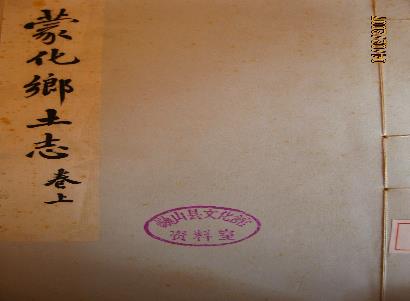 蒙化鄉土志
卷上
巍山县文化馆
资料室